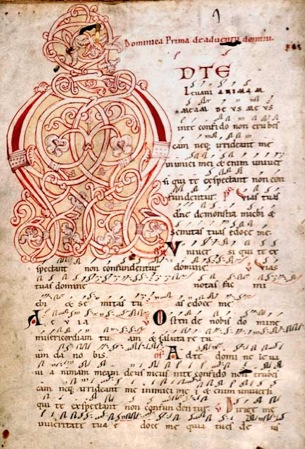 Dominica Prima de adventu domini
D TE
levavi ANIMAM
MEAM DEUS MEUS
inte confido non erubes
cam neq; irrideant me
inimici mei & enim univer
si qui te expectant non con
fundentur Vias tuas
dne demonstra michi &
semitas tuas edoce me
V niver si qui te ex
spectant non confundentur domine Vias
tuas domine notas fac mi
chi & se mitas tuas edoce me
Al le lu ia Ostende nobis do mine
misericordiam tuam & salutare tu
um da no bis. Ad te domine le va
vi a nimam meam deus meus inte confido non erubes
cam neq; irrideant me inimici mei & enim universi
qui te expectant non confun dentur Dirige me
in veritate tua & doce me quia tu es de us